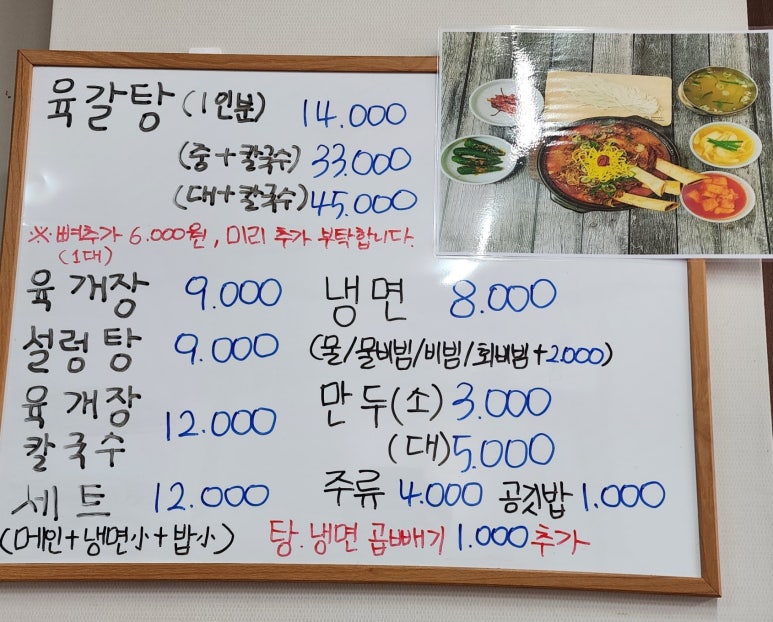 육갈탕 (1인분) 14.000
(중+칼국수) 33.000
(대+칼국수) 45.000
※ 뼈추가 6.000원, 미리 추가 부탁합니다.
(1대)
육개장 9.000
설렁탕 9.000
육개장
칼국수 12.000
세트 12.000
(메인+냉면小+밥小)
냉면 8.000
(물/물비빔/비빔/회비빔+2.000)
만두(소) 3.000
(대) 5.000
주류 4.000 공깃밥 1.000
탕.냉면 곱빼기 1.000 추가